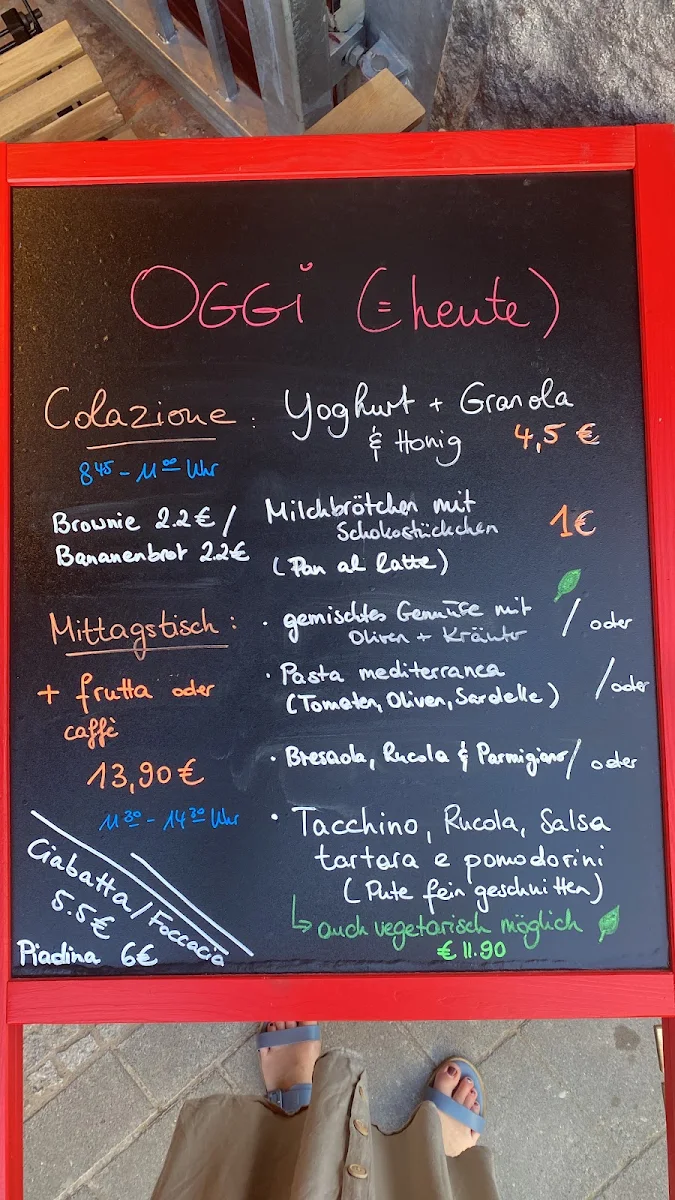 OGGi (= heute)
Colazione : Yoghurt + Granola
& Honig 4,5 €
8⁴⁵ - 11⁰⁰ Uhr
Brownie 2.2€ /
Bananenbrot 2.2€
Milchbrötchen mit
Schokostückchen 1€
(Pan al latte)
Mittagstisch :
+ frutta oder
caffè
13,90 €
11³⁰ - 14³⁰ Uhr
· gemischtes Gemüse mit
Oliven + Kräuter / oder
· Pasta mediterranea
(Tomaten, Oliven, Sardelle) / oder
· Bresaola, Rucola & Parmigiano / oder
· Tacchino, Rucola, Salsa
tartara e pomodorini
(Pute fein geschnitten)
↳ auch vegetarisch möglich
€ 11.90
Ciabatta / Foccacia
5.5€
Piadina 6€